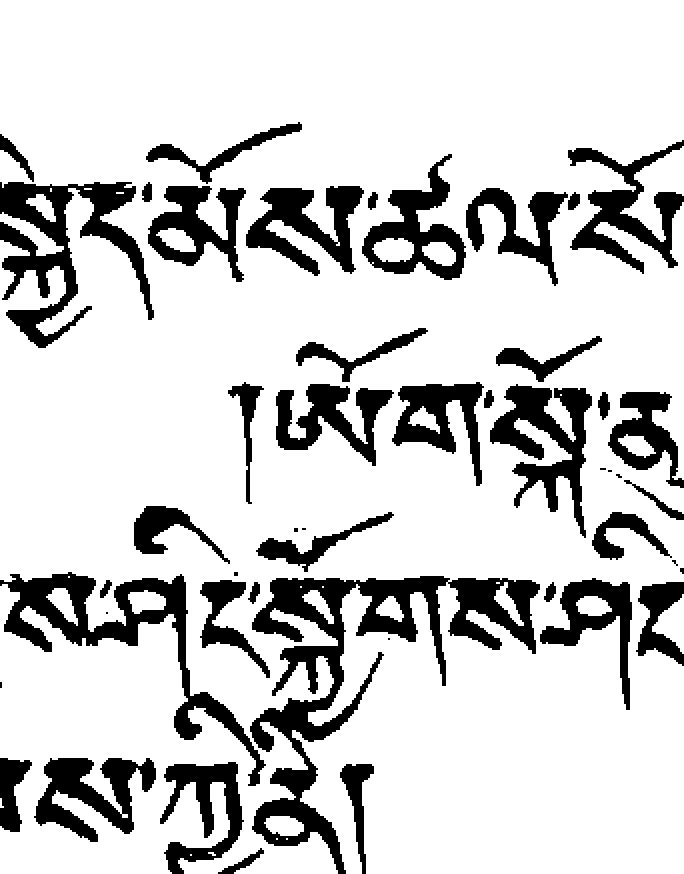 སྐྱེད་མོས་ཚལ་སོ
།ཨོག་སྐོ་
ས་ཤིང་སྐྱོགས་ཤིང
ས་ཀྱི་ནི།